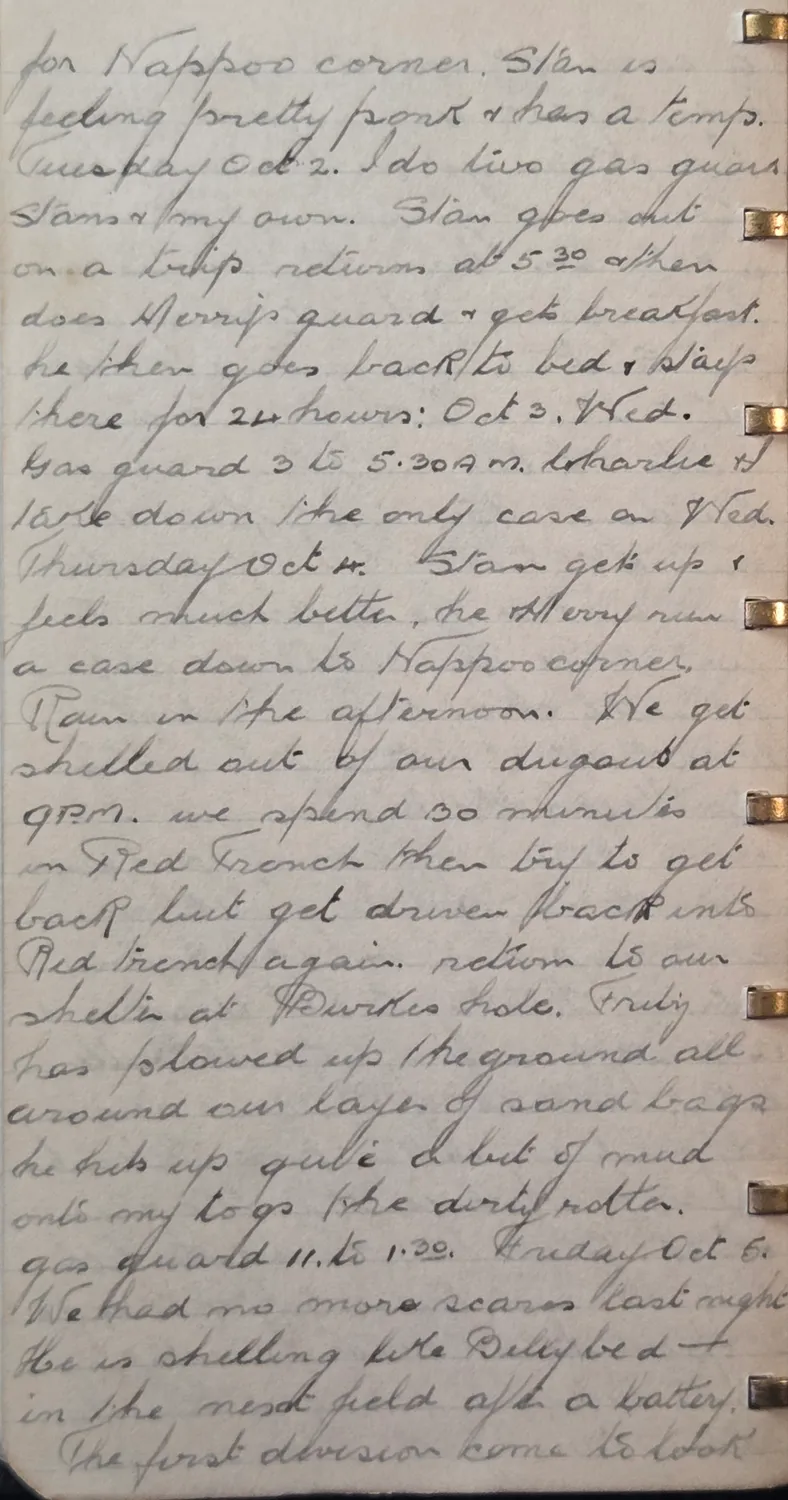 for Nappoo corner. Stan is
feeling pretty ponk & has a temp.
Tuesday Oct 2. I do two gas guars
Stans & my own. Stan goes out
on a trip returns at 5 30 & then
does Merrys guard & gets breakfast.
he then goes back to bed & stays
there for 24 hours: Oct 3. Wed.
Gas guard 3 to 5.30 A m. Charlie & I
take down the only case on Wed.
Thursday Oct 4. Stan gets up &
feels much better, he & Merry run
a case down to Nappoo corner.
Rain in the afternoon. We get
shelled out of our dugout at
9 P.M. we spend 30 minutes
in Red Trench then try to get
back but get driven back into
Red trench again. return to our
shelter at Burkes hole. Fritz
has plowed up the ground all
around our layer of sand bags
he hits up quite a bit of mud
onto my togs the dirty rotter.
gas guard 11. to 1.30. Friday Oct 5.
We had no more scares last night
He is shelling like Billy bed —
in the next field after a battery.
The first division come to look